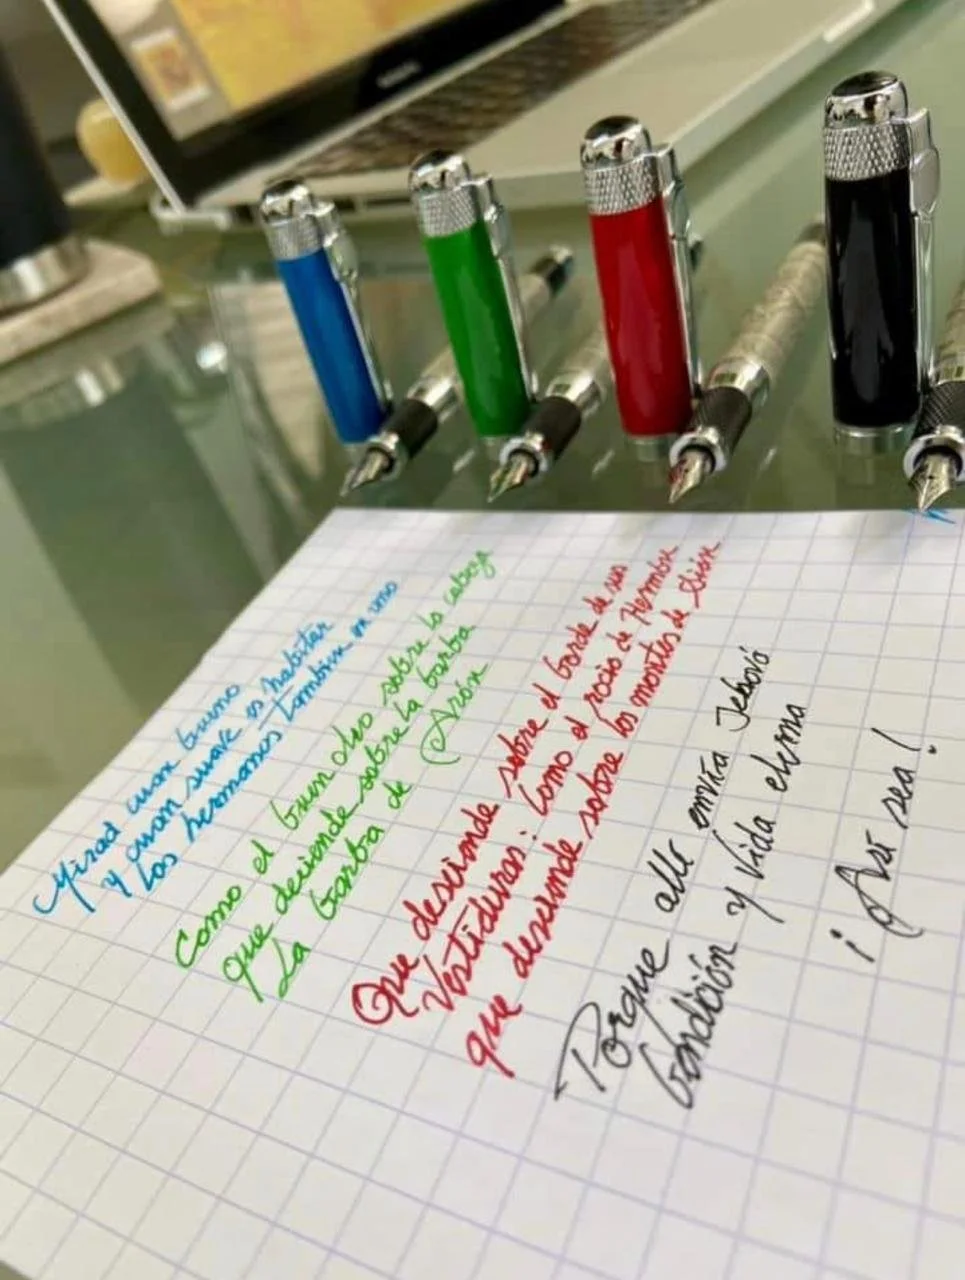 Mirad cuan bueno
y cuan suave es habitar
Los hermanos tambien en uno
Como el buen oleo sobre la cabeza
que deciende sobre la barba
La barba de Arón
Que desciende sobre el borde de sus
Vestiduras: Como el rocio de Hermón
que desciende sobre los montes de Sión
Porque allí envía Jehová
bendición y Vida eterna
¡Así sea!